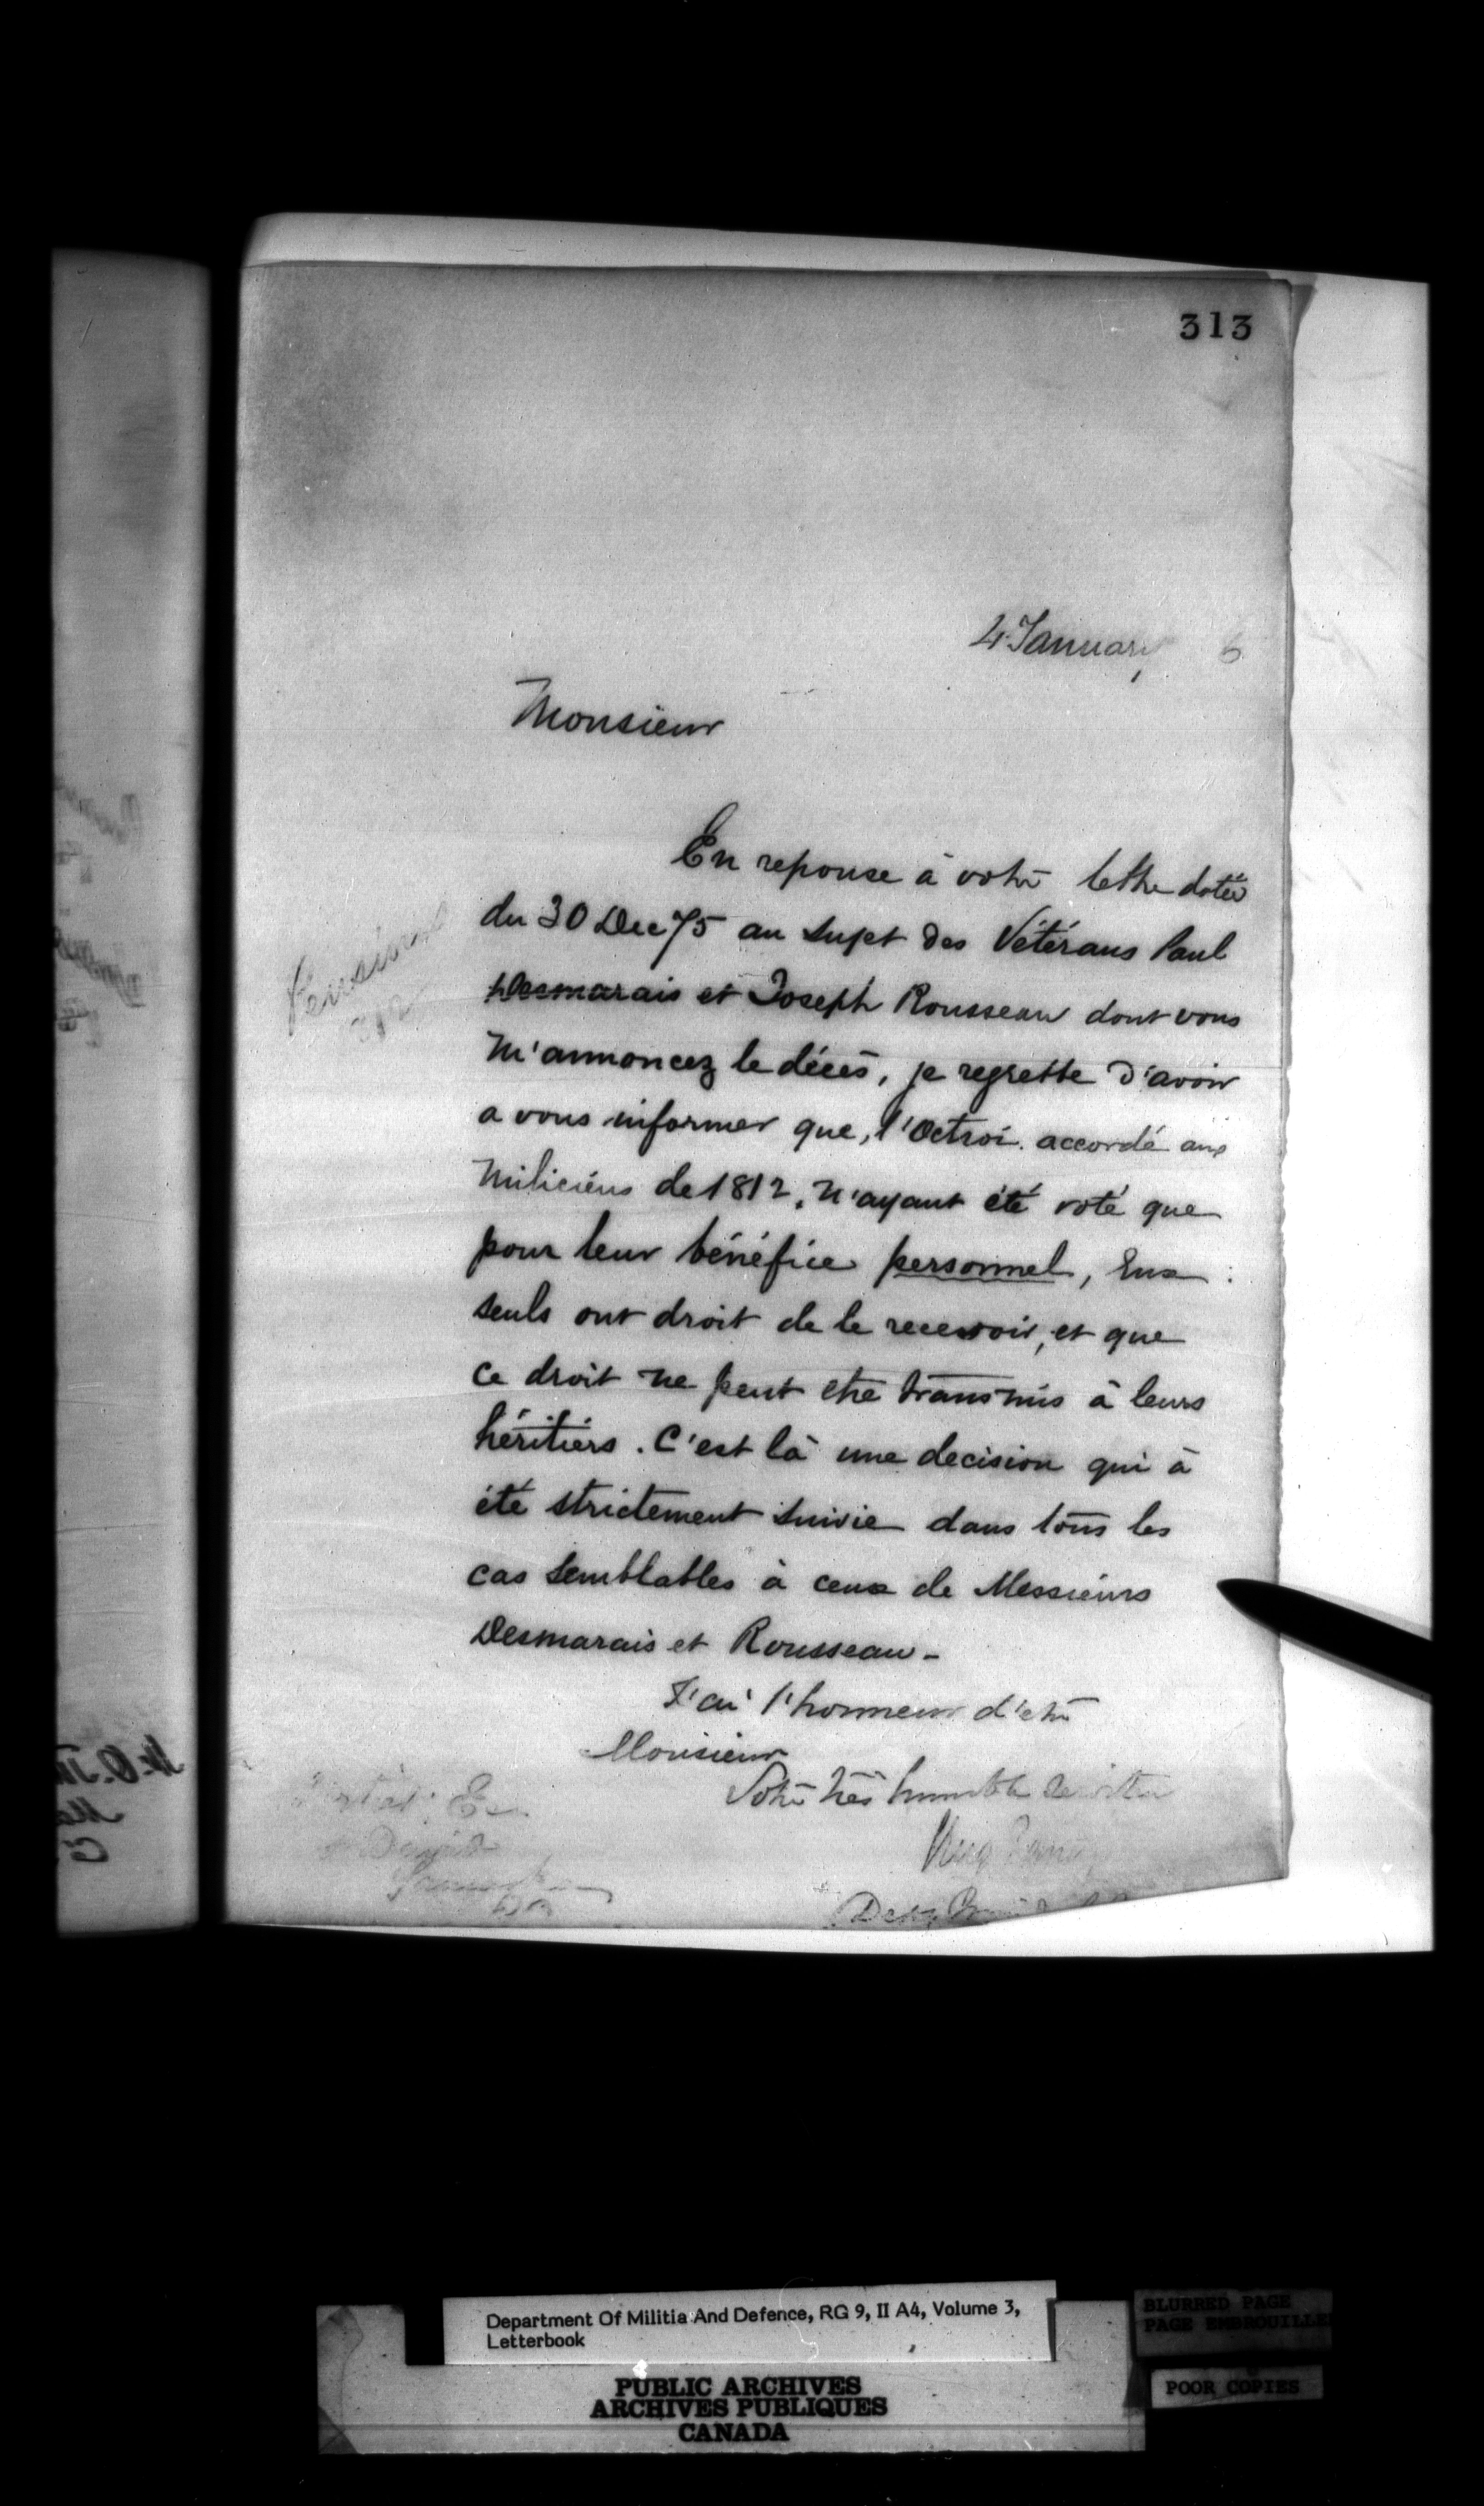 313
4 January 6
Monsieur
En reponse à votre lettre datée
du 30 Dec 75 au sujet des Vétérans Paul
Desmarais et Joseph Rousseau dont vous
m'annoncez le décès, je regrette d'avoir
a vous informer que, l'Octroi accordé aux
Miliciens de 1812, n'ayant été voté que
pour leur bénéfice personnel, Eux
seuls ont droit de le recevoir, et que
ce droit ne peut etre transmis à leurs
héritiers. C'est là une decision qui à
été strictement suivie dans tous les
cas semblables à ceux de Messieurs
Desmarais et Rousseau -
J'ai l'honneur d'etre
Monsieur
Votre très humble serviteur
Pensions
1812
Department Of Militia And Defence, RG 9, II A4, Volume 3,
Letterbook
PUBLIC ARCHIVES
ARCHIVES PUBLIQUES
CANADA
BLURRED PAGE
PAGE EMBROUILLE
POOR COPIES